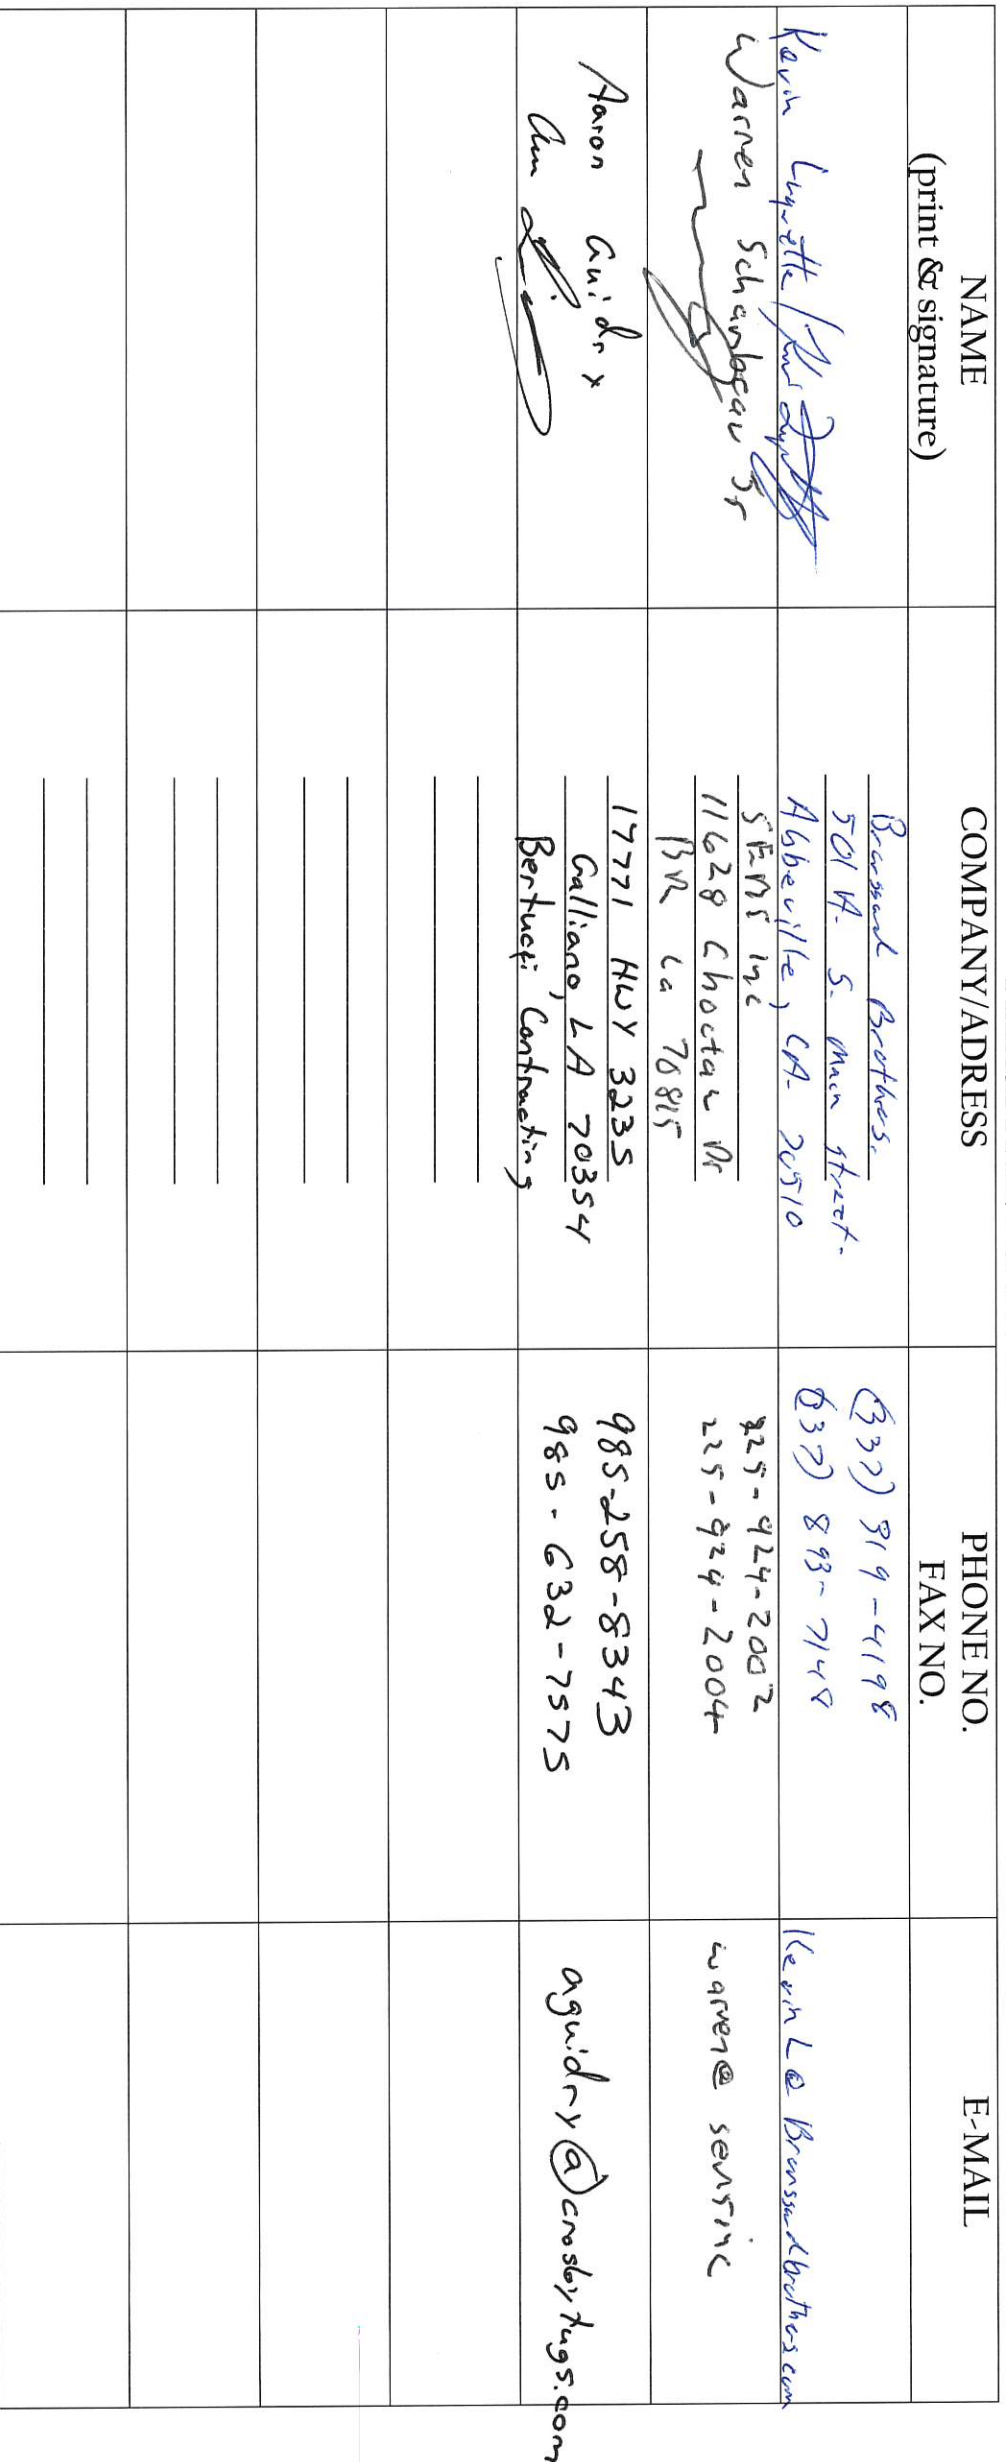 NAME
(print & signature)
COMPANY/ADRESS
PHONE NO.
FAX NO.
E-MAIL
Kevin
Brothers.
501 A. S. Main street.
Abbeville, LA. 70510
(337) 319-4198
(337) 893-7148
Warren Schambeau Sr
SEMS inc
11628 Choctaw Dr
BR La 70815
225-924-2002
225-924-2004
warren@ semsinc
Aaron Guidry
17771 HWY 3235
Galliano, LA 70354
Bertucci Contracting
985-258-8343
985-632-7575
aguidry@crosbytugs.com